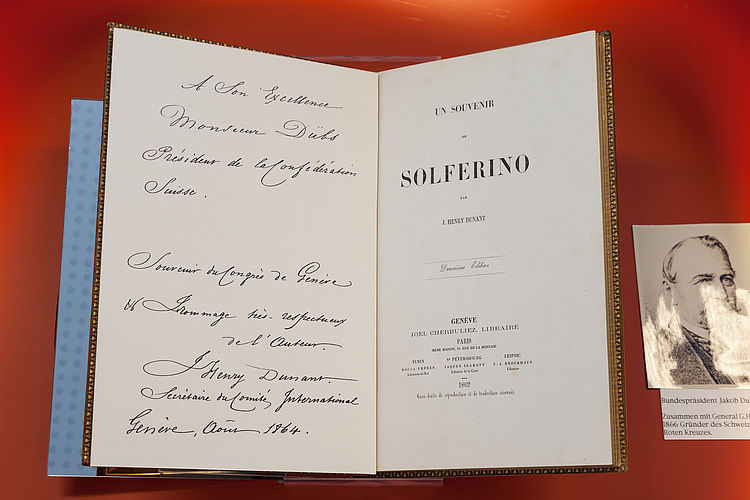 A Son Excellence
Monsieur Dübs
Président de la Confédération
Suisse.
Souvenir du Congrès de Genève
& Hommage très-respectueux
de l'Auteur.
J. Henry Dunant.
Secrétaire du Comité International
Genève, Août 1864.
UN SOUVENIR
DE
SOLFERINO
PAR
J. HENRY DUNANT
Deuxième Edition
GENÈVE
JOEL CHERBULIEZ, LIBRAIRE
PARIS
MÊME MAISON, 10, RUE DE LA MONNAIE
TURIN
BOCCA FRÈRES
Libraires du Roi
St PÉTERSBOURG
JAQUES ISSAKOFF
Libraire de la Cour
LEIPSIC
F.-A. BROCKHAUS
Libraire
1862
Tous droits de reproduction et de traduction réservés
Bundespräsident Jakob Du
Zusammen mit General G.H
1866 Gründer des Schweiz
Roten Kreuzes.